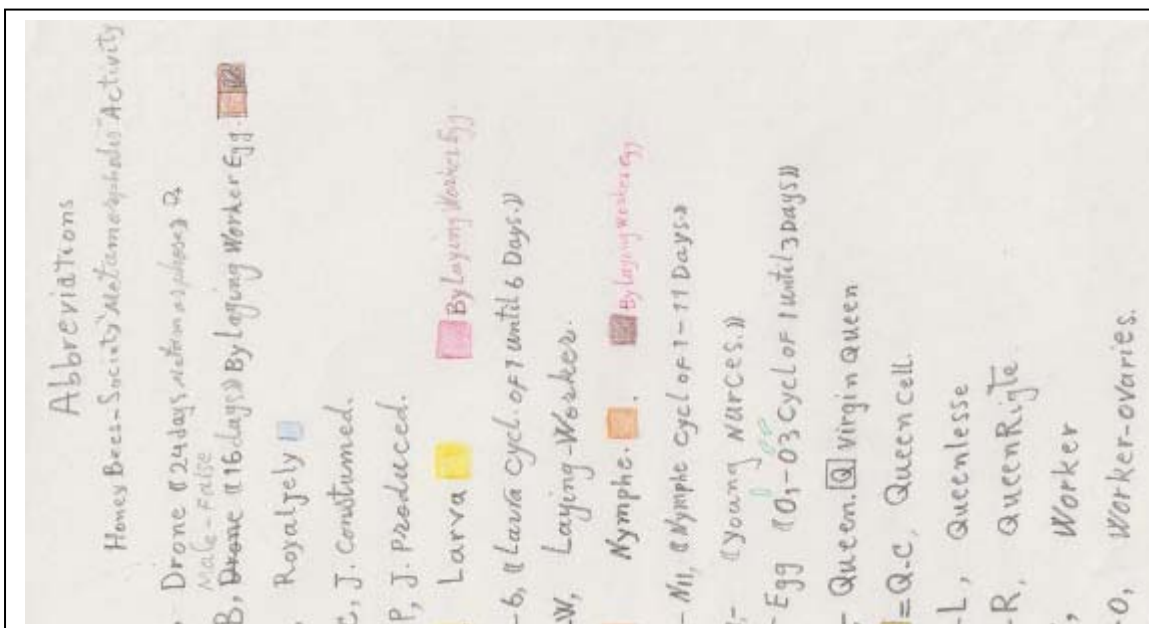 Abbreviations
Honey Bees-Society Metamorphosis Activity
Drone «24 days Metamorphose»
Male-False
B, Drone «16 days» By Laying Worker Egg.
Royaljely
C, J. Constumed.
P, J. Produced.
Larva By Laying Worker Egg
-6, «Larva Cycl. of 1 until 6 Days.»
W, Laying-Worker.
Nymphe. By Laying Worker Egg
-N11, «Nymphe Cycl of 1-11 Days.»
«young Narces.»
-Egg «O1-O3 Cycl of 1 until 3 Days»
Queen. Q Virgin Queen
=Q-C, Queen cell.
-L, Queenlesse
-R, Queen Rigte
, Worker
-O, Worker-ovaries.